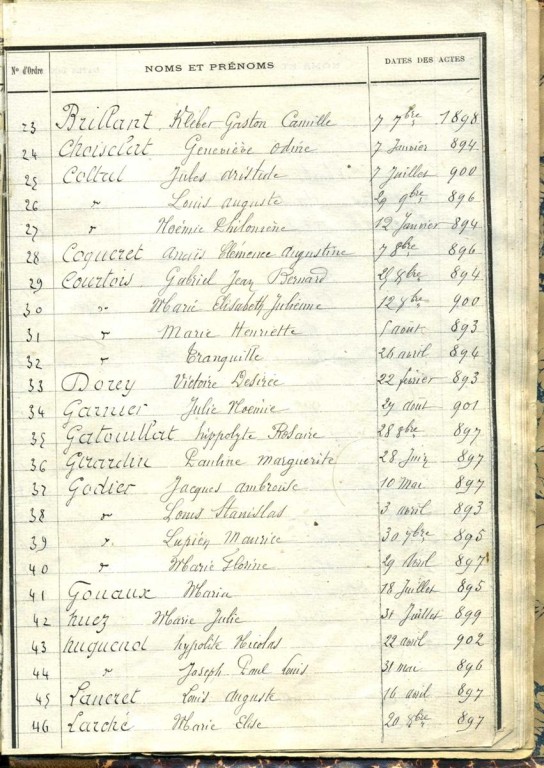 Nos d'Ordre NOMS ET PRÉNOMS DATES DES ACTES
23 Brillant Kléber Gaston Camille 7 7bre 1898
24 Choiselat Geneviève Odine 7 Janvier 894
25 Coltel Jules Aristide 7 Juillet 900
26 " Louis Auguste 29 9bre 896
27 " Noémie Philomène 12 Janvier 894
28 Coqueret Clémence Augustine 7 8bre 896
29 Courtois Gabriel Jean Bernard 894
30 " Marie Elisabeth Julienne 12 900
31 " Marie Henriette août 893
32 " Tranquille 26 avril 894
33 Dorey Victoire Desirée 22 février 893
34 Garnier Julie Noémie 27 août 901
35 Gatouillat hippolyte Rosaire 28 8bre 897
36 Girardin Pauline Marguerite 28 Juin 897
37 Godier Jacques Ambroise 10 Mai 897
38 " Louis Stanislas 3 avril 893
39 " Lupien Maurice 30 895
40 " Marie Florine 29 Avril 897
41 Gouaux Maria 18 Juillet 895
42 huez Marie Julie 31 Juillet 899
43 huguenot hypolite Nicolas 22 avril 902
44 " Joseph Paul Louis 31 mai 896
45 Lancret Louis Auguste 16 avril 897
46 Larché Marie Elise 20 897